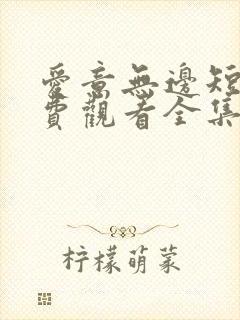 愛意無邊短
費觀看全集
柠檬萌菜